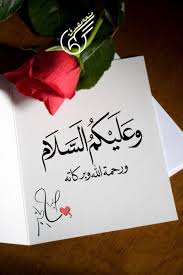 وَعَلَيْكُمُ السَّلَامُ
ورحمة الله وبركاته